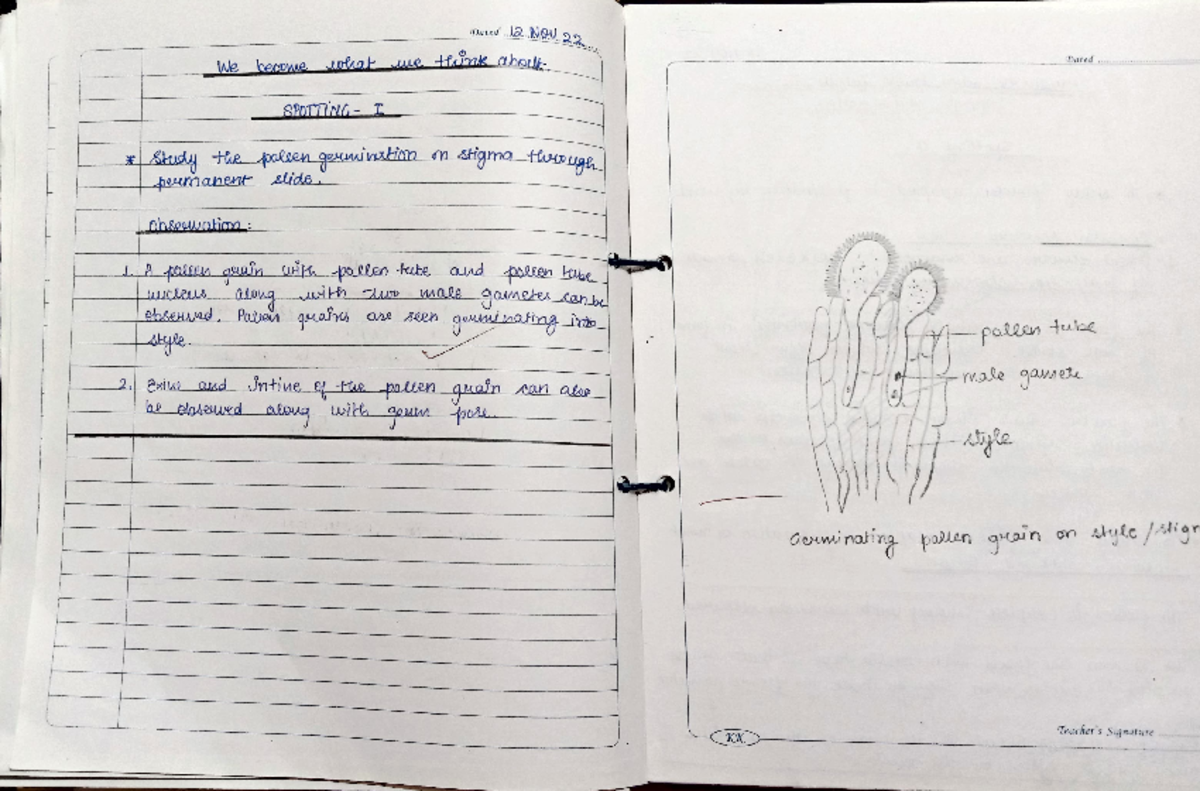 Dated 12 NOV. 22
We become what we think about.
SPOTTING - I
* Study the pollen germination on stigma through
permanent slide.
Observation:
1. A pollen grain with pollen tube and pollen tube
nucleus along with two male gametes can be
observed. Pollen grains are seen germinating into
style.
2. Exine and Intine of the pollen grain can also
be observed along with germ pore.
Dated
pollen tube
male gamete
style
Germinating pollen grain on style/stigm
KK
Teacher's Signature